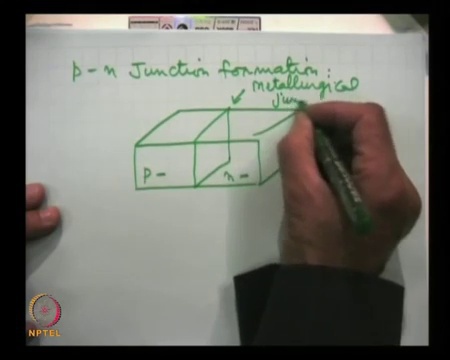 p-n Junction formation:
metallurgical
junc
p-
n-
NPTEL